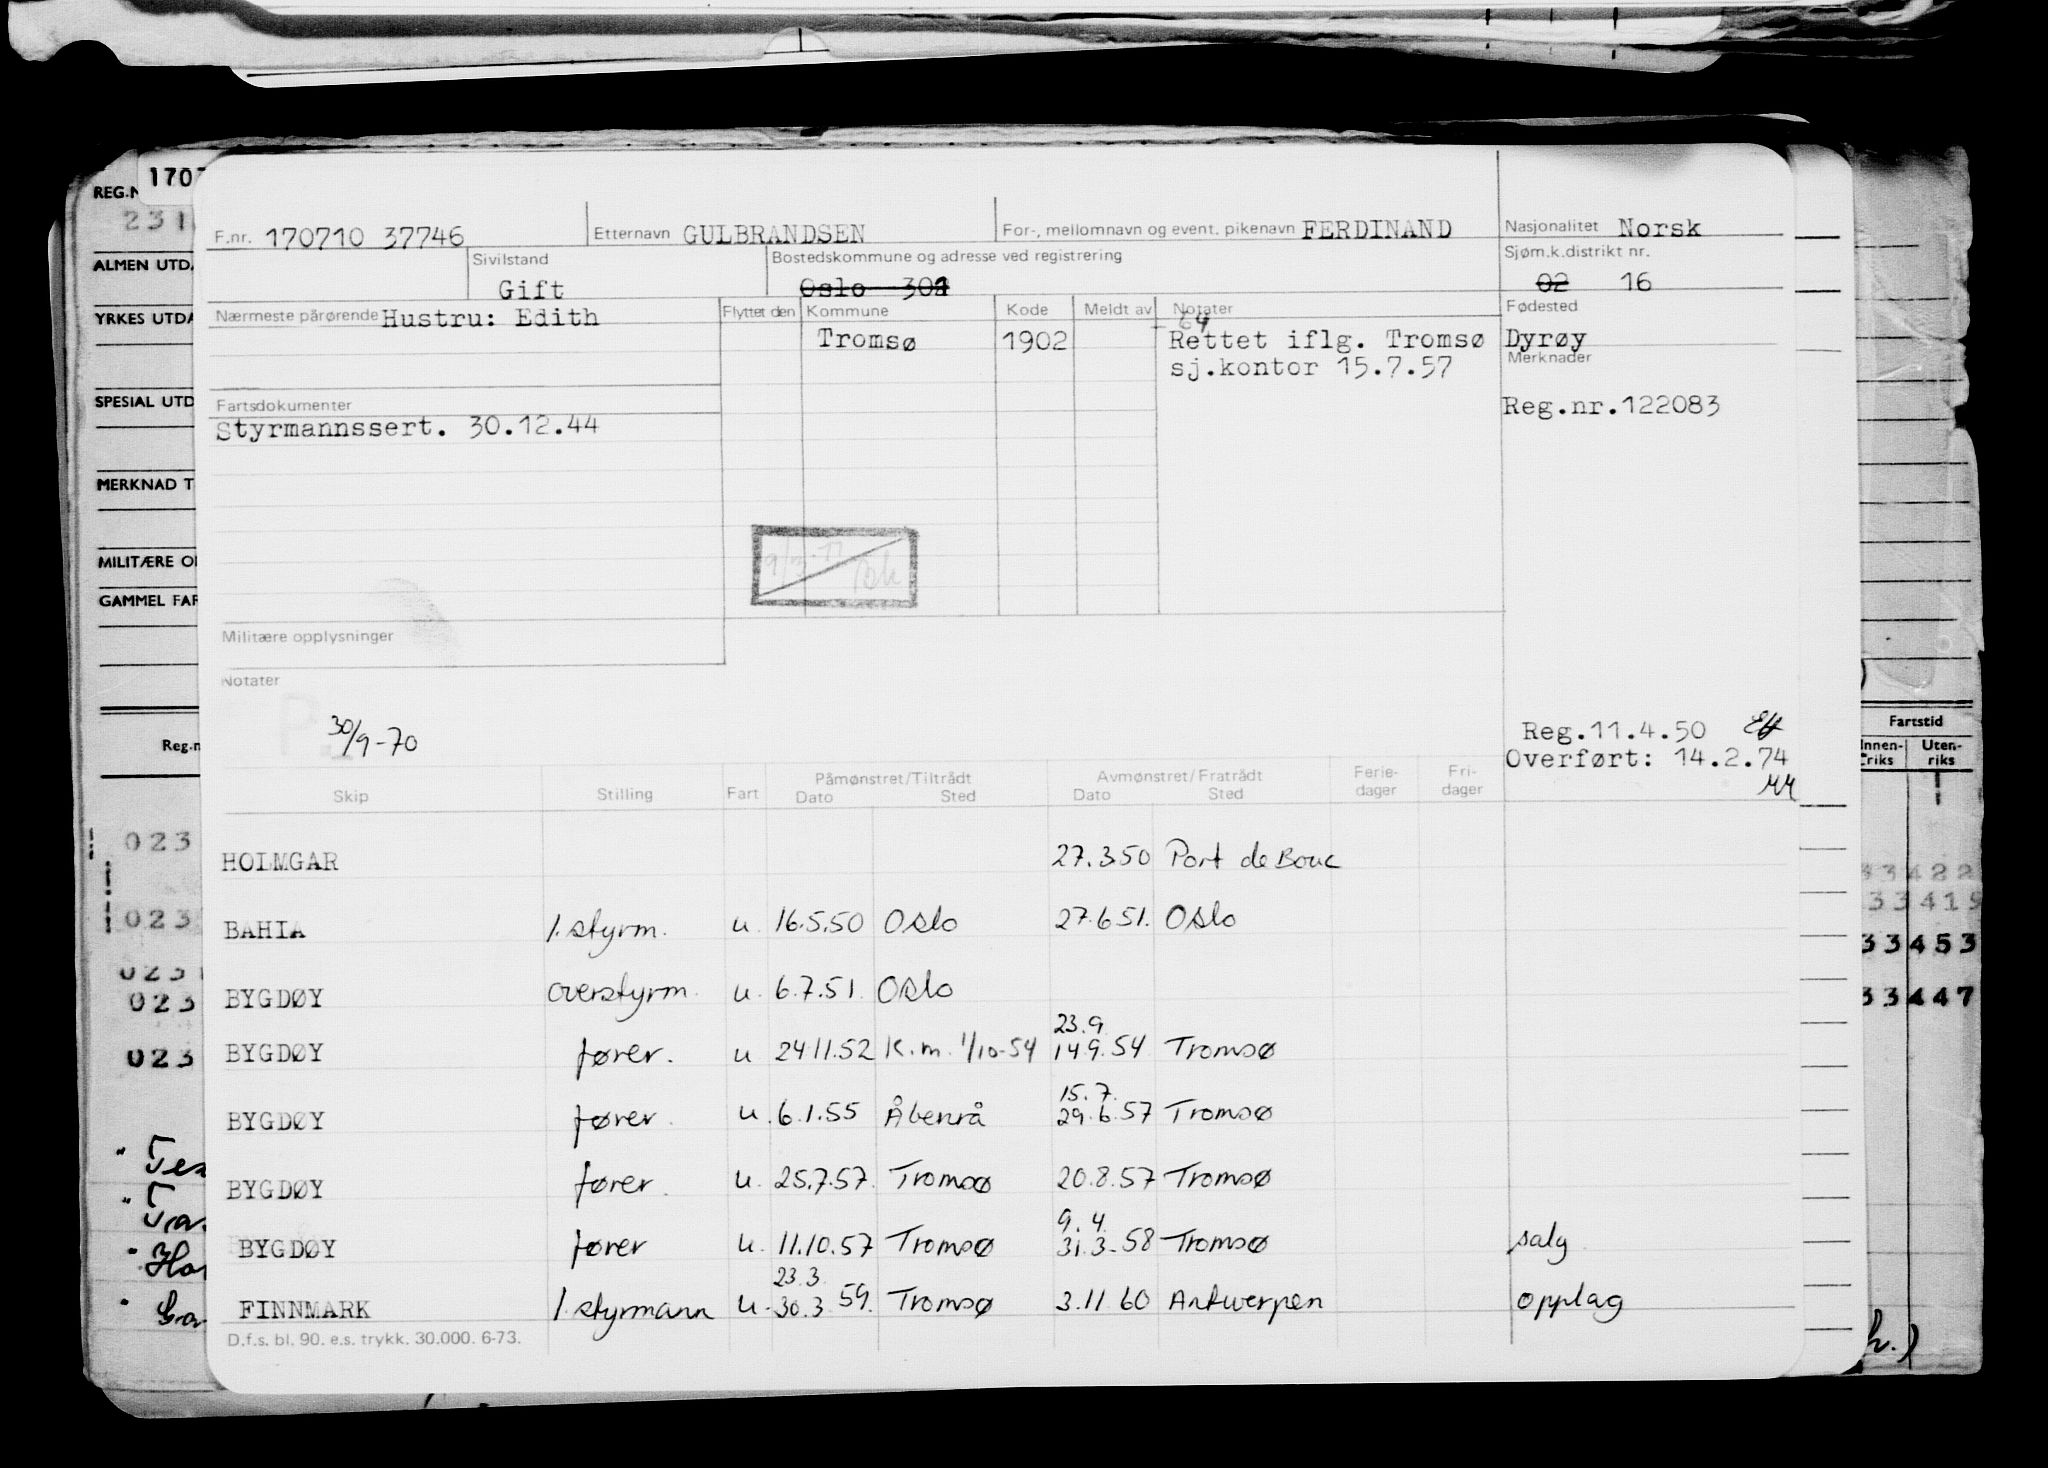 1707
REG.N
231
ALMEN UTDA
YRKES UTDA
SPESIAL UTD
MERKNAD T
MILITÆRE O
GAMMEL FAR
Reg.n
F.nr. 170710 37746 Etternavn GULBRANDSEN For-, mellomnavn og event. pikenavn FERDINAND Nasjonalitet Norsk
Sivilstand Bostedskommune og adresse ved registrering Sjøm.k.distrikt nr.
Gift Oslo 301 02 16
Nærmeste pårørende Hustru: Edith Flyttet den Kommune Kode Meldt av Notater Fødested
64
Tromsø 1902 Rettet iflg. Tromsø Dyrøy
sj.kontor 15.7.57 Merknader
Fartsdokumenter Reg.nr.122083
Styrmannssert. 30.12.44
Militære opplysninger
Notater
30/9-70
Reg.11.4.50
Overført: 14.2.74
Fartstid
Innen-riks Uten-riks
Skip Stilling Fart Påmønstret/Tiltrådt Dato Sted Avmønstret/Fratrådt Dato Sted Ferie-dager Fri-dager
HOLMGAR 27.3.50 Port de Bouc
BAHIA 1. styrm. u. 16.5.50 Oslo 27.6.51. Oslo
BYGDØY overstyrm. u. 6.7.51. Oslo
23.9
BYGDØY fører. u 24.11.52 K.m. 1/10-54 14.9.54 Tromsø
15.7.
BYGDØY fører. u. 6.1.55 Åbenrå 29.6.57 Tromsø
BYGDØY fører. u. 25.7.57. Tromsø 20.8.57 Tromsø
9.4.
BYGDØY fører u. 11.10.57 Tromsø 31.3-58 Tromsø salg
23.3.
FINNMARK 1. styrmann u. 30.3.59. Tromsø 3.11 60 Antwerpen opplag
D.f.s. bl. 90. e.s. trykk. 30.000. 6-73.
023
023
023
023
023
33422
33419
33453
33447